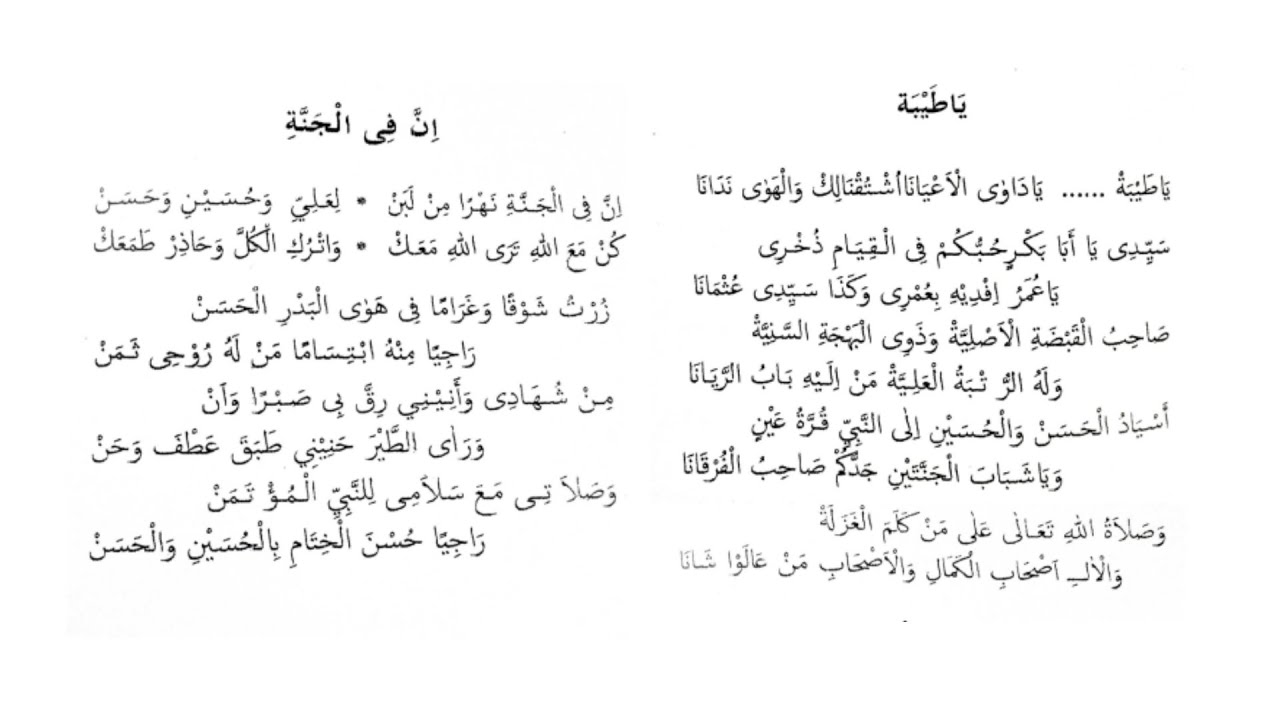 يَاطَيْبَة
يَاطَيْبَةْ ...... يَادَاوٰى الْاَعْيَانَااُشْتُقْنَالِكْ وَالْهَوٰى نَدَانَا
سَيِّدِى يَا أَبَا بَكْرٍحُبُّكُمْ فِى الْقِيَامِ ذُخْرِى
يَاعُمَرُ اِفْدِيْهِ بِعُمْرِى وَكَذَا سَيِّدِى عُثْمَانَا
صَاحِبُ الْقَبْضَةِ الْاَصْلِيَّةْ وَذَوِى الْبَهْجَةِ السَّنِيَّةْ
وَلَهُ الرُّ تْبَةُ الْعَلِيَّةْ مَنْ اِلَيْهِ بَابُ الرَّيَانَا
أَسْيَادُ الْحَسَنْ وَالْحُسَيْنِ اِلٰى النَّبِيِّ قُرَّةُ عَيْنٍ
وَيَاشَبَابَ الْجَنَّتَيْنِ جَدُّكُمْ صَاحِبُ الْفُرْقَانَا
وَصَلاَةُ اللهِ تَعَالٰى عَلٰى مَنْ كَلَمَ الْغَزَلَةْ
وَالْاٰلِـ اَصْحَابِ الْكَمَالِ وَالْاَصْحَابِ مَنْ عَالَوْا شَانَا
اِنَّ فِى الْجَنَّةِ
اِنَّ فِى الْجَنَّةِ نَهْرًا مِنْ لَبَنْ * لِعَلِيّ وَحُسَيْنِ وَحَسَنْ
كُنْ مَعَ اللهِ تَرَى اللهِ مَعَكْ * وَاتْرُكِ الْكُلَّ وَحَاذِرْ طَمَعَكْ
زُرْتُ شَوْقًا وَغَرَامًا فِى هَوٰى الْبَدْرِ الْحَسَنْ
رَاجِيًا مِنْهُ ابْتِسَامًا مَنْ لَهُ رُوْحِى ثَمَنْ
مِنْ شُهَادِى وَأَنِيْنِي رِقَّ بِى صَبْرًا وَأَنْ
وَرَاٰى الطَّيْرَ حَنِيْنِي طَبَقَ عَطْفَ وَحَنْ
وَصَلاَ تِى مَعَ سَلاَمِى لِلنَّبِيِّ الْمُؤْ تَمَنْ
رَاجِيًا حُسْنَ الْخِتَامِ بِالْحُسَيْنِ وَالْحَسَنْ